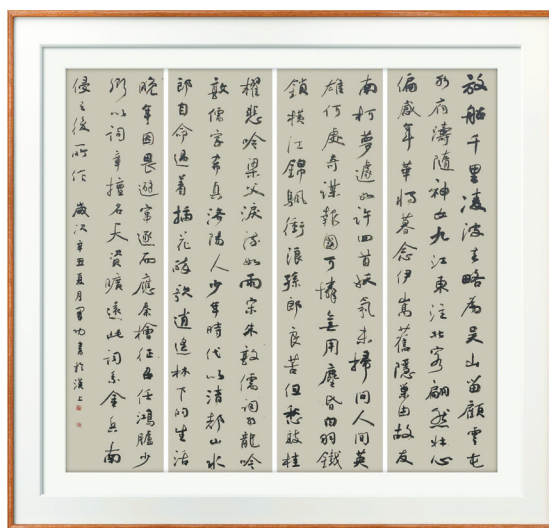 放船千里凌波去略為吳山留顧雲屯
水府濤隨神女九江東注北客翩然壯心
偏感年華將暮念伊嵩舊隱巢由故友
南柯夢遽如許回首妖氛未掃問人間英
雄何處奇謀報國可憐無用塵昏白羽鐵
鎖橫江錦颿衝浪孫郎良苦但愁敲桂
櫂悲吟梁父淚流如雨宋朱敦儒詞水龍吟
敦儒字希真洛陽人少年時代以清都山水
郎自命過着插花醉歌逍遙林下的生活
晚年因畏避竄逐而應秦檜征召任鴻臚少
卿以詞章擅名天資曠遠此詞系金兵南
侵之後所作 歲次辛丑夏月功書於漢上